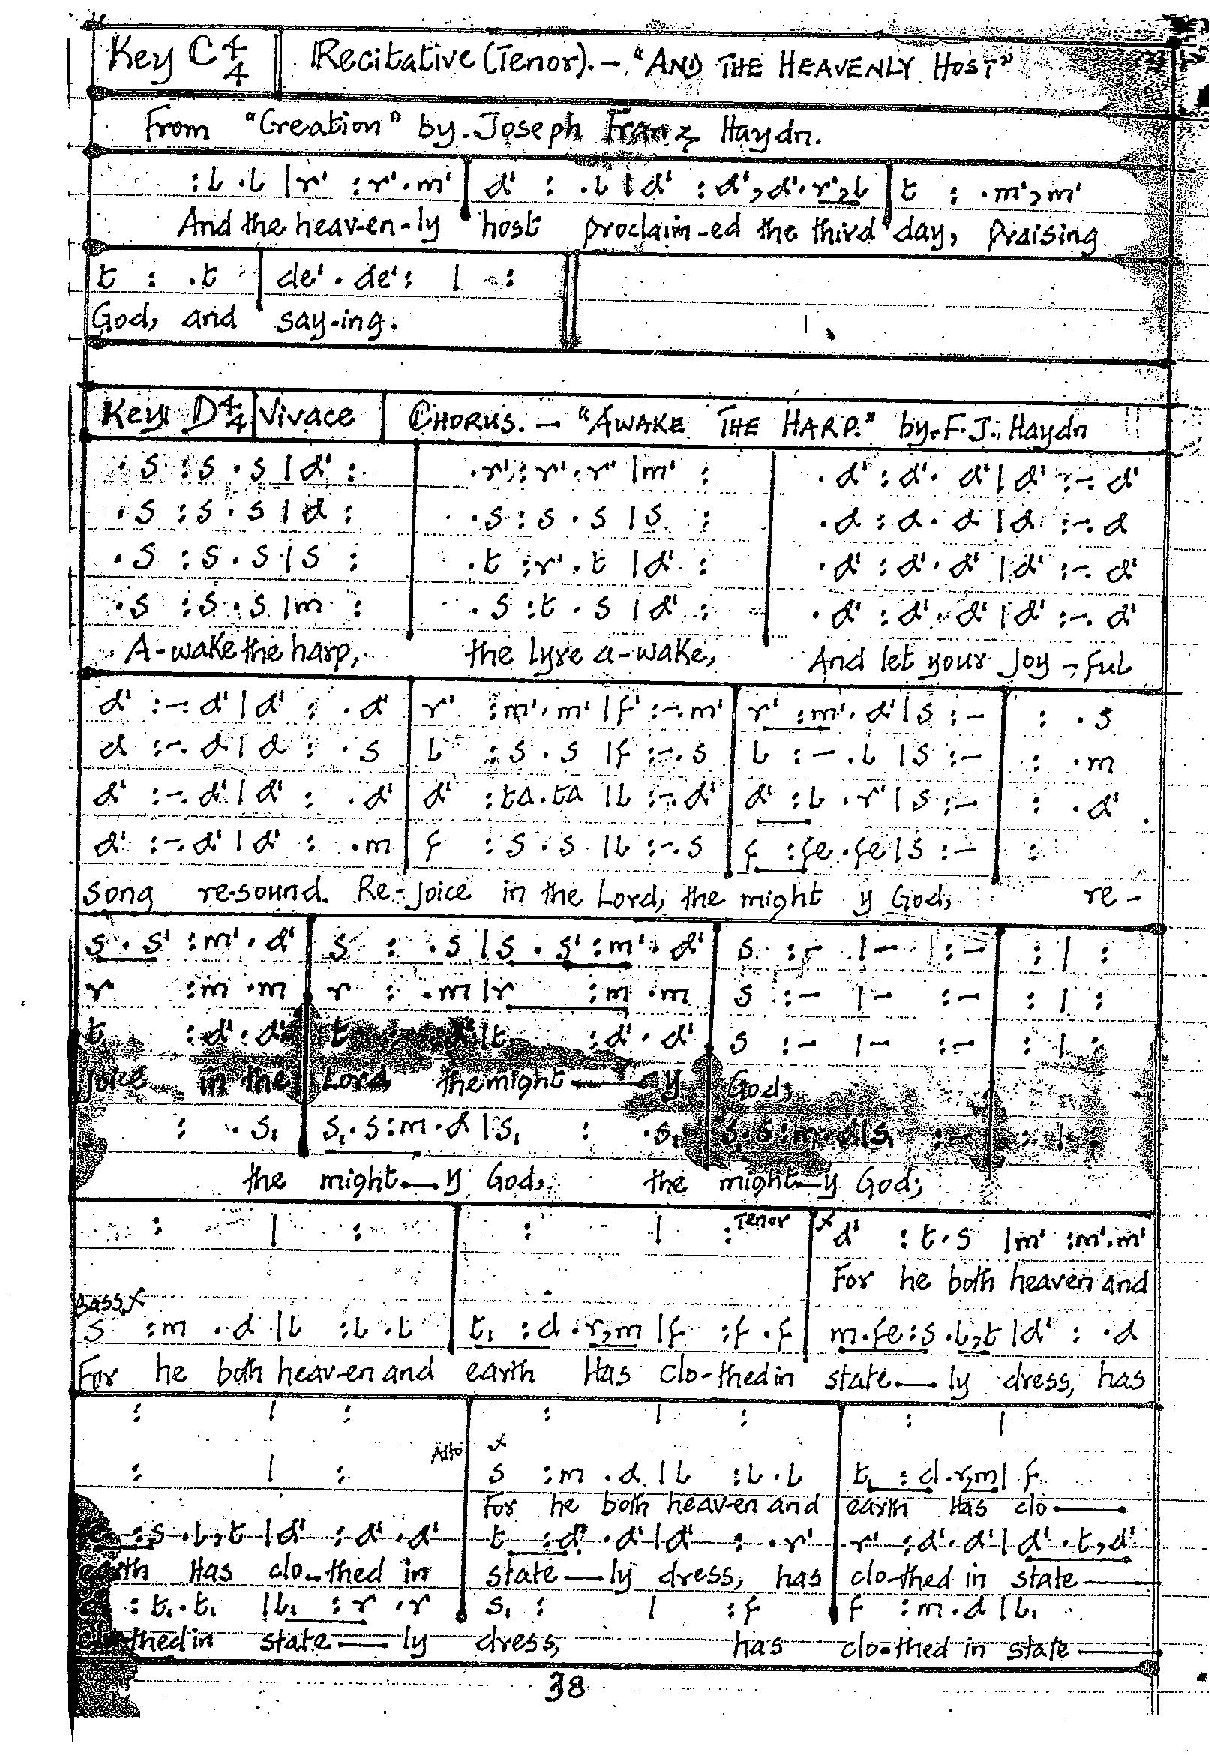 Key C 4/4 Recitative (Tenor). – "AND THE HEAVENLY HOST"
From "Creation" by. Joseph Franz Haydn.
:l .l |r' :r'.m' | d' : .l |d' :d',d'.r',l | t : .m',m'
And the heav-en-ly host proclaim-ed the third day, praising
t : .t | de'.de': | :
God, and say-ing.
Key D 4/4 Vivace CHORUS. – "AWAKE THE HARP." by. F.J. Haydn
.s :s .s |d' : | .r':r'.r' |m' : | .d' :d'. d' |d' :-. d'
.s :s .s |d : | .s :s .s |s : | .d :d . d |d :-. d
.s :s .s |s : | .t :r'.t |d' : | .d' :d'.d' |d' :-. d'
.s :s .s |m : | .s :t .s |d' : | .d' :d'.d' |d' :-. d'
A-wake the harp, the lyre a-wake, And let your Joy-ful
d' :-. d' |d' : .d' | r' :m'.m' |f' :-.m' | r' :m'.d' |s :- | : .s
d :-. d |d : .s | l :s .s |f :-.s | l :-.l |s :- | : .m
d' :-.d' |d' : .d' | d' :ta.ta |l :-.d' | d' :l .r' |s :- | : .d'
d' :-.d' |d' : .m | f :s .s |l :-.s | f :fe.fe |s :- | :
song re-sound. Re-joice in the Lord, the might y God, re-
s .s' :m'.d' | s : .s |s .s' :m'.d' | s :- |- :- | : | :
r :m .m | r : .m |r :m .m | s :- |- :- | : | :
t :d'.d' | t d' |t :d'.d' | s :- |- :- | : | :
joice in the Lord the might—y God;
: .s₁ | s₁.s :m .d |s₁ : .s₁ | s₁.s :m .d |s₁ :- | : | :
the might—y God, the might—y God;
: | : | : | :Tenor | x d' :t .s |m' :m'.m'
For he both heaven and
Bass x
s :m .d |l :l .l | t₁ :d .r,m |f :f .f | m.fe:s .l,t |d' : .d
For he both heav-en and earth Has clo-thed in state—ly dress, has
: | : | : | : | : |
x
: | : Alto | s :m .d |l :l .l | t₁ :d.r,m| f
For he both heaven and earth Has clo—
:s .l,t |d' :d'.d' | t :d'.d' |d' : .r' | r' :d'.d' |d'.t,d'
Has clo-thed in state—ly dress, has clo-thed in state—
:t₁.t₁ |l₁ :r .r | s₁ : | :f | f :m.d |l₁
state—ly dress, has clo-thed in state—
38